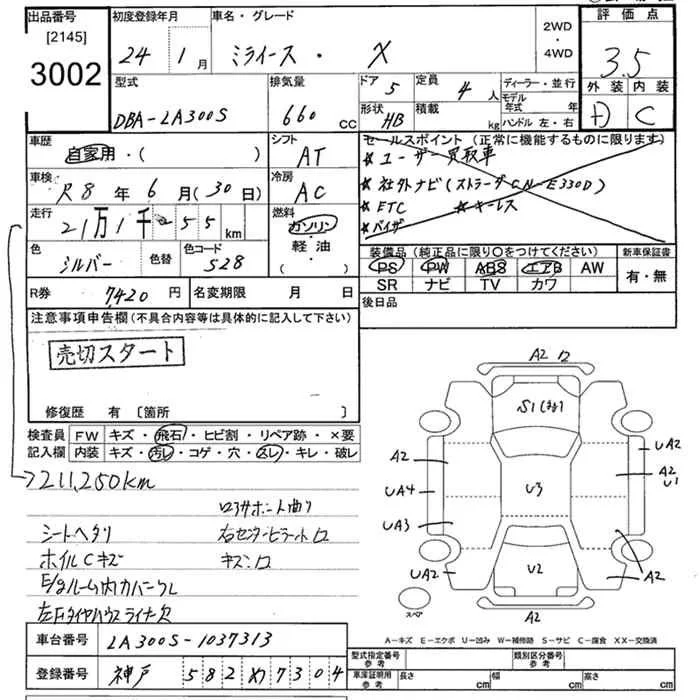 出品番号 初度登録年月 車名・グレード 2WD 評価点
[2145] 24 1月 ミライース・ X ・ 4WD 3.5
3002
型式 排気量 ドア 5 定員 4人 ディーラー・並行 外装 内装
DBA-LA300S 660 CC 形状 HB 積載 kg モデル年式 年 D C
ハンドル 左・右
車歴 シフト セールスポイント (正常に機能するものに限ります)
自家用・( ) AT ★ユーザー買取車
車検 冷房 ★社外ナビ(ストラーダCN-E330D)
R8年6月(30日) AC ★ETC ★キーレス
走行 燃料 ★バイザー
21万1千255km ガソリン・
軽・油
( )
色 色替 色コード 装備品 (純正品に限り○をつけてください) 新車保証書
シルバー S28 PS PW ABS エアB AW 有・無
SR ナビ TV カワ
R券 7420円 名変期限 月 日 後日品
注意事項申告欄(不具合内容等は具体的に記入して下さい)
売切スタート
修復歴 有 〔箇所 〕
検査員 FW キズ・飛石・ヒビ割・リペア跡・×要
記入欄 内装 キズ・汚レ・コゲ・穴・スレ・キレ・破レ
211,250km
シートヘタリ 右センターピラートロ
ホイルCキズ キズン口
E/gルーム内カバークレ
左Fタイヤハウスライナー欠
A2
S1
A2 UA2
A2
U1
UA4 U3
UA3
UA2 U2 A2
スペア A2
A-キズ E-エクボ U-凹み W-補修跡 S-サビ C-腐食 XX-交換済
車台番号 LA300S-1037313
型式指定番号 参考 類別区分番号 参考
登録番号 神戸 582 め 7304
車庫証明用 参考 長さ cm 幅 cm 高さ cm